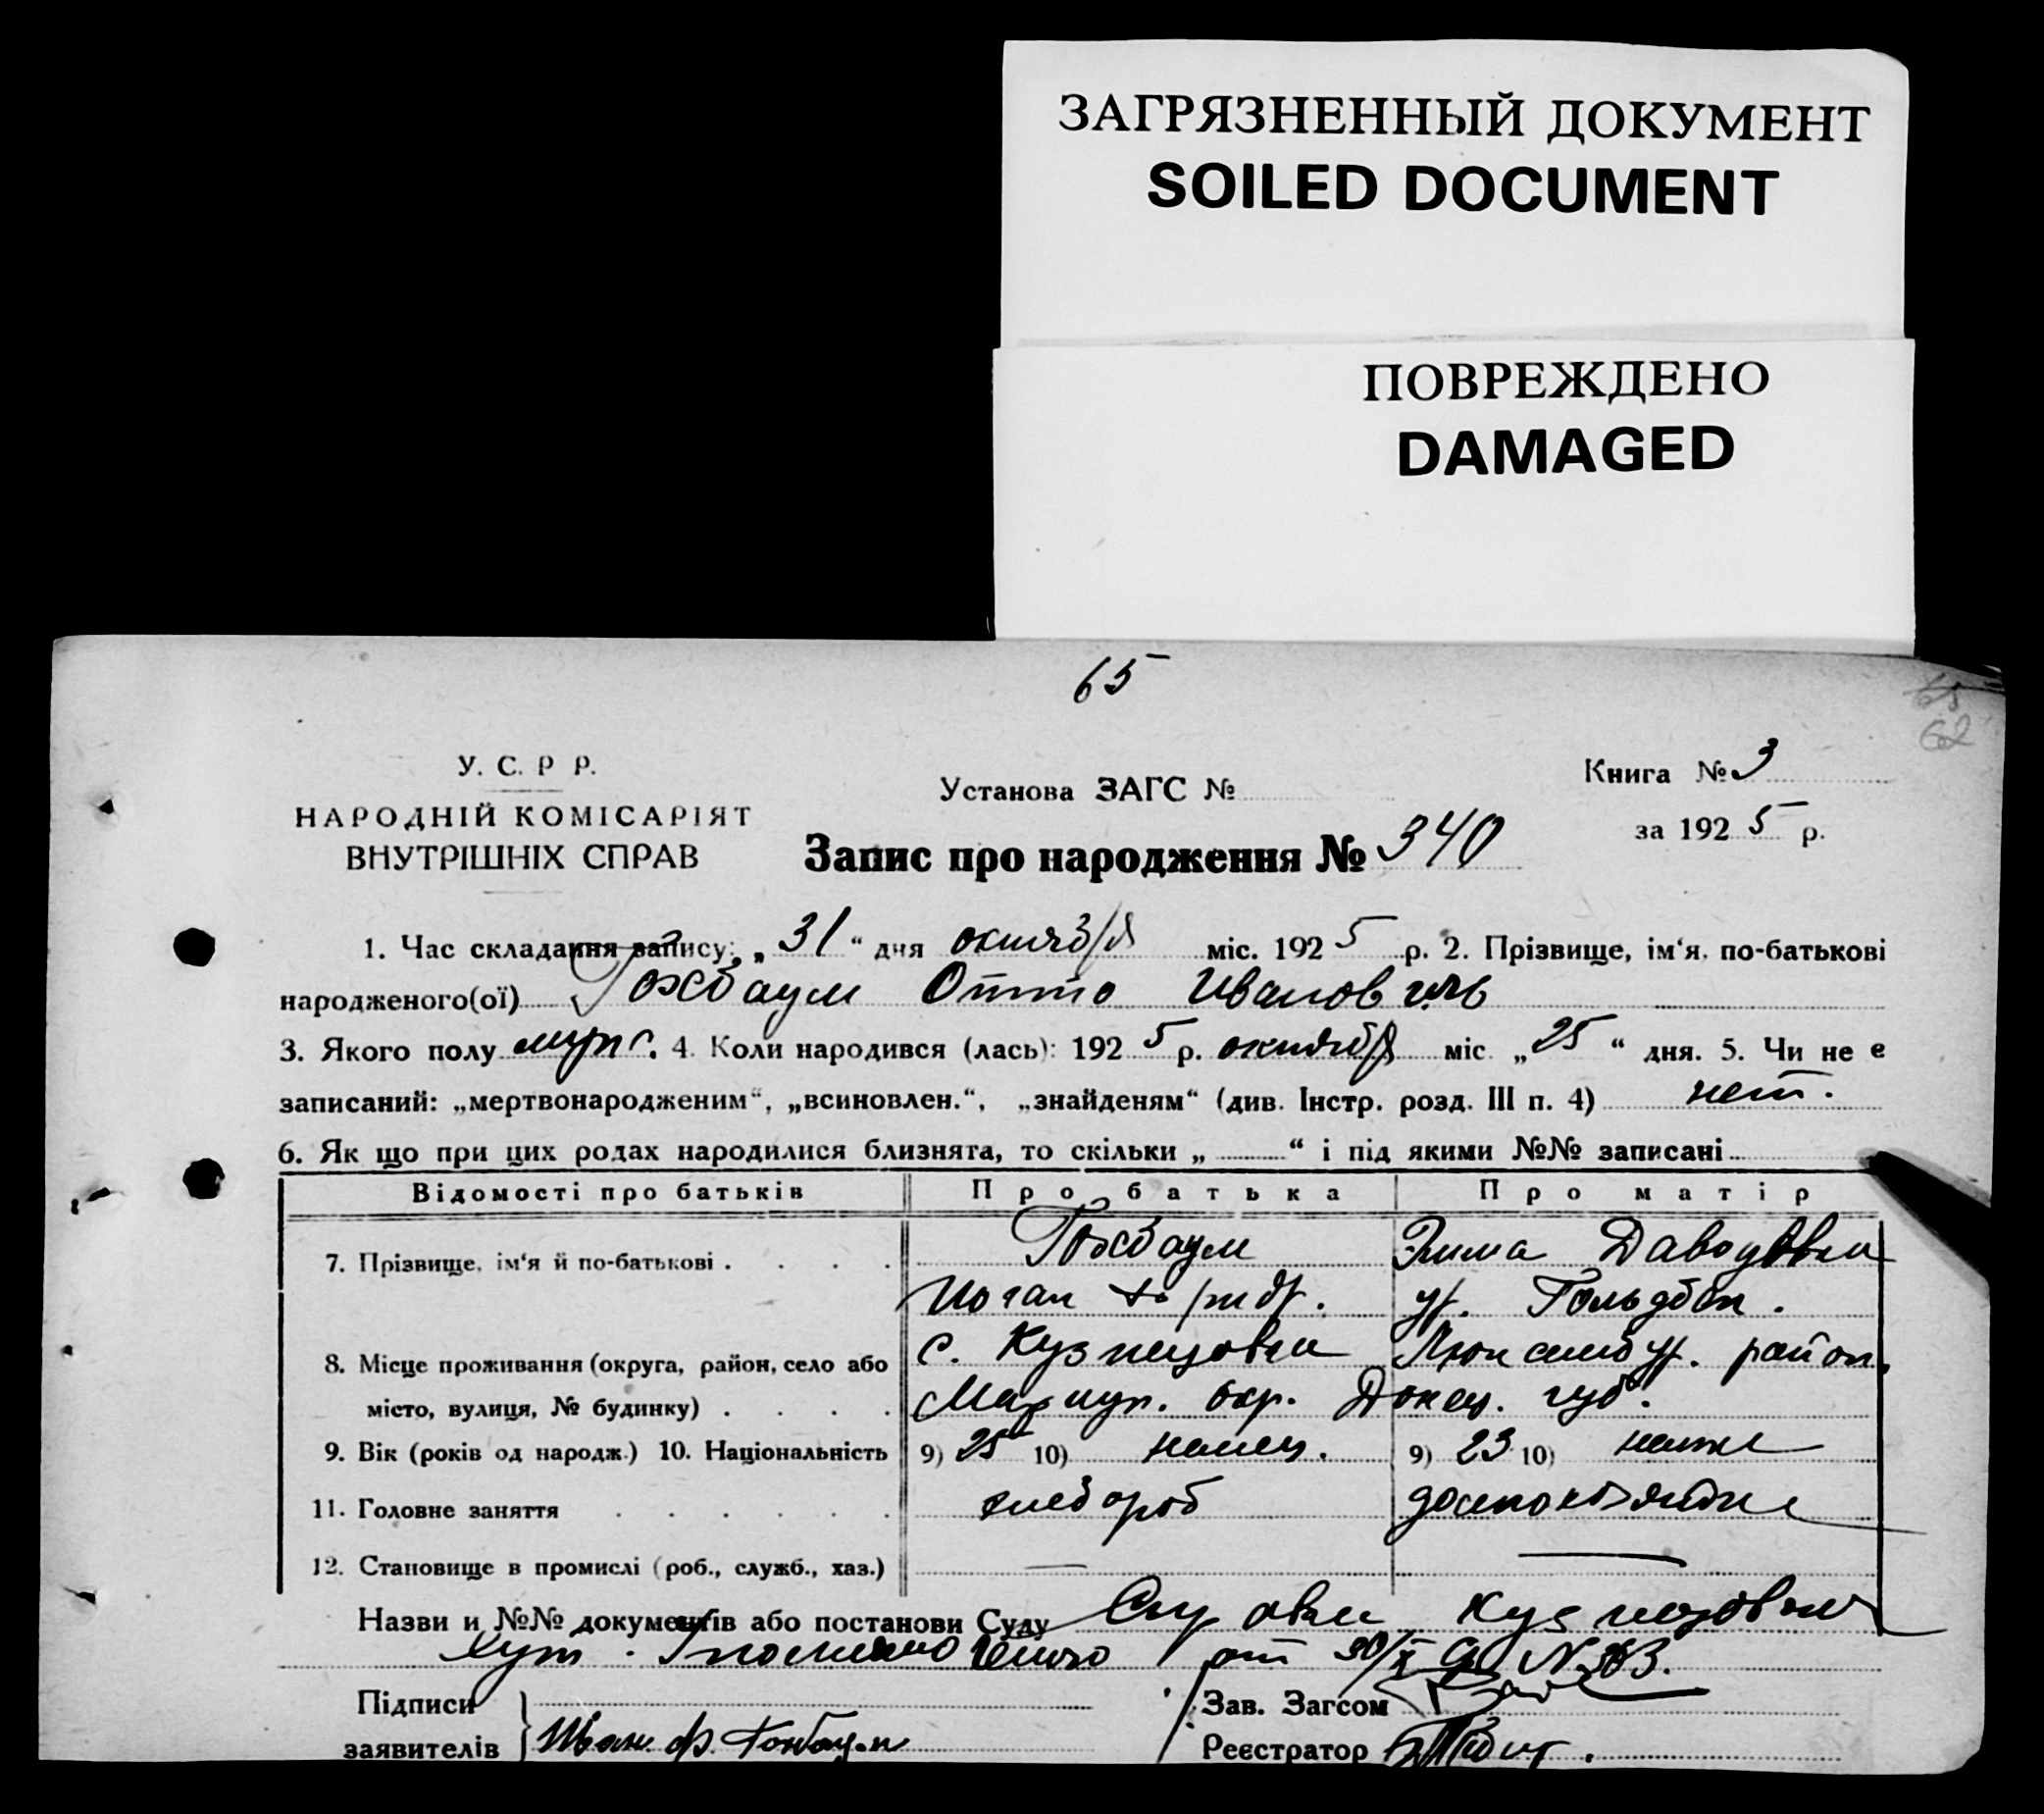 ЗАГРЯЗНЕННЫЙ ДОКУМЕНТ
SOILED DOCUMENT
ПОВРЕЖДЕНО
DAMAGED
65
65
62
У. С. Р Р.
НАРОДНІЙ КОМІСАРІЯТ
ВНУТРІШНІХ СПРАВ
Установа ЗАГС №
Запис про народження № 340
Книга № 3
за 1925 р.
1. Час складання запису: „31“ дня октября міс. 1925 р. 2. Прізвище, ім'я, по-батькові
народженого(ої) Гохбаум Отто Иванович
3. Якого полу мужс. 4. Коли народився (лась): 1925 р. октября міс „25“ дня. 5. Чи не є
записаний: „мертвонародженим“, „всиновлен.“, „знайденям“ (див. Інстр. розд. III п. 4) нет.
6. Як що при цих родах народилися близнята, то скільки „ “ і під якими №№ записані
Відомості про батьків Про батька Про матір
7. Прізвище, ім'я й по-батькові . . . . Гохбаум Эмма Давидовна
Иоган ур. Гольдбек.
8. Місце проживання (округа, район, село або с. Кузнецовка Люксембур. район,
місто, вулиця, № будинку) . . . . Мариуп. окр. Донец. губ.
9. Вік (років од народж.) 10. Національність 9) 25 10) немец. 9) 23 10) немка
11. Головне заняття . . . . . . хлебороб домохозяйка
12. Становище в промислі (роб., служб., хаз.) — —
Назви и №№ документів або постанови Суду Кузнецовка
хут. от 30/X
Підписи
заявителів Иван Ф. Гохбаум
Зав. Загсом
Реєстратор